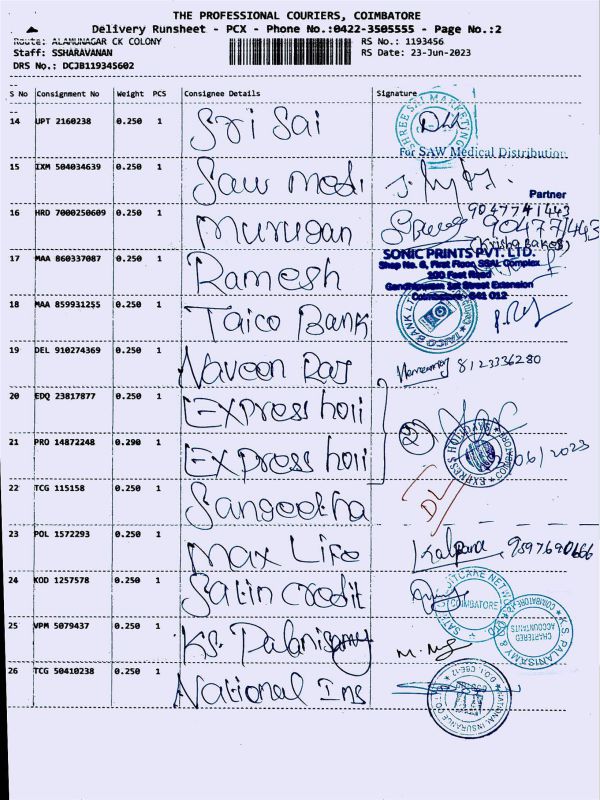 THE PROFESSIONAL COURIERS, COIMBATORE
Delivery Runsheet - PCX - Phone No.:0422-3505555 - Page No.:2
Route: ALAMUNAGAR CK COLONY RS No.: 1193456
Staff: SSHARAVANAN RS Date: 23-Jun-2023
DRS No.: DCJB119345602
S No Consignment No Weight PCS Consignee Details Signature
14 UPT 2160238 0.250 1 Sri Sai
SHREE SAI MARKETING
For SAW Medical Distribution
15 IXM 504034639 0.250 1 Saw Medi
Partner
16 HRD 7000250609 0.250 1 Murugan 9047741443
(Krishna Bakes)
17 MAA 860337087 0.250 1 Ramesh
SONIC PRINTS PVT. LTD.
Shop No. 6, First Floor, SSAL Complex
100 Feet Road
Gandhipuram 1st Street Extension
Coimbatore - 641 012
18 MAA 859931255 0.250 1 Taico Bank
TAICO BANK LTD
19 DEL 910274369 0.250 1 Naveen Raj 8123336280
20 EDQ 23817877 0.250 1 Express holi
21 PRO 14872248 0.290 1 Express holi
(2)
EXPRESS HOLIDAYS COIMBATORE
06/2023
22 TCG 115158 0.250 1 Sangeetha DL
23 POL 1572293 0.250 1 Max Life Kalpana, 9597690666
24 KOD 1257578 0.250 1 Satin Credit
SATIN CREDITCARE NETWORK
COIMBATORE
25 VPM 5079437 0.250 1 K.S. Palanisamy
K.S. PALANISAMY & CO
CHARTERED ACCOUNTANTS
COIMBATORE
26 TCG 50410238 0.250 1 National Ins
NATIONAL INSURANCE CO